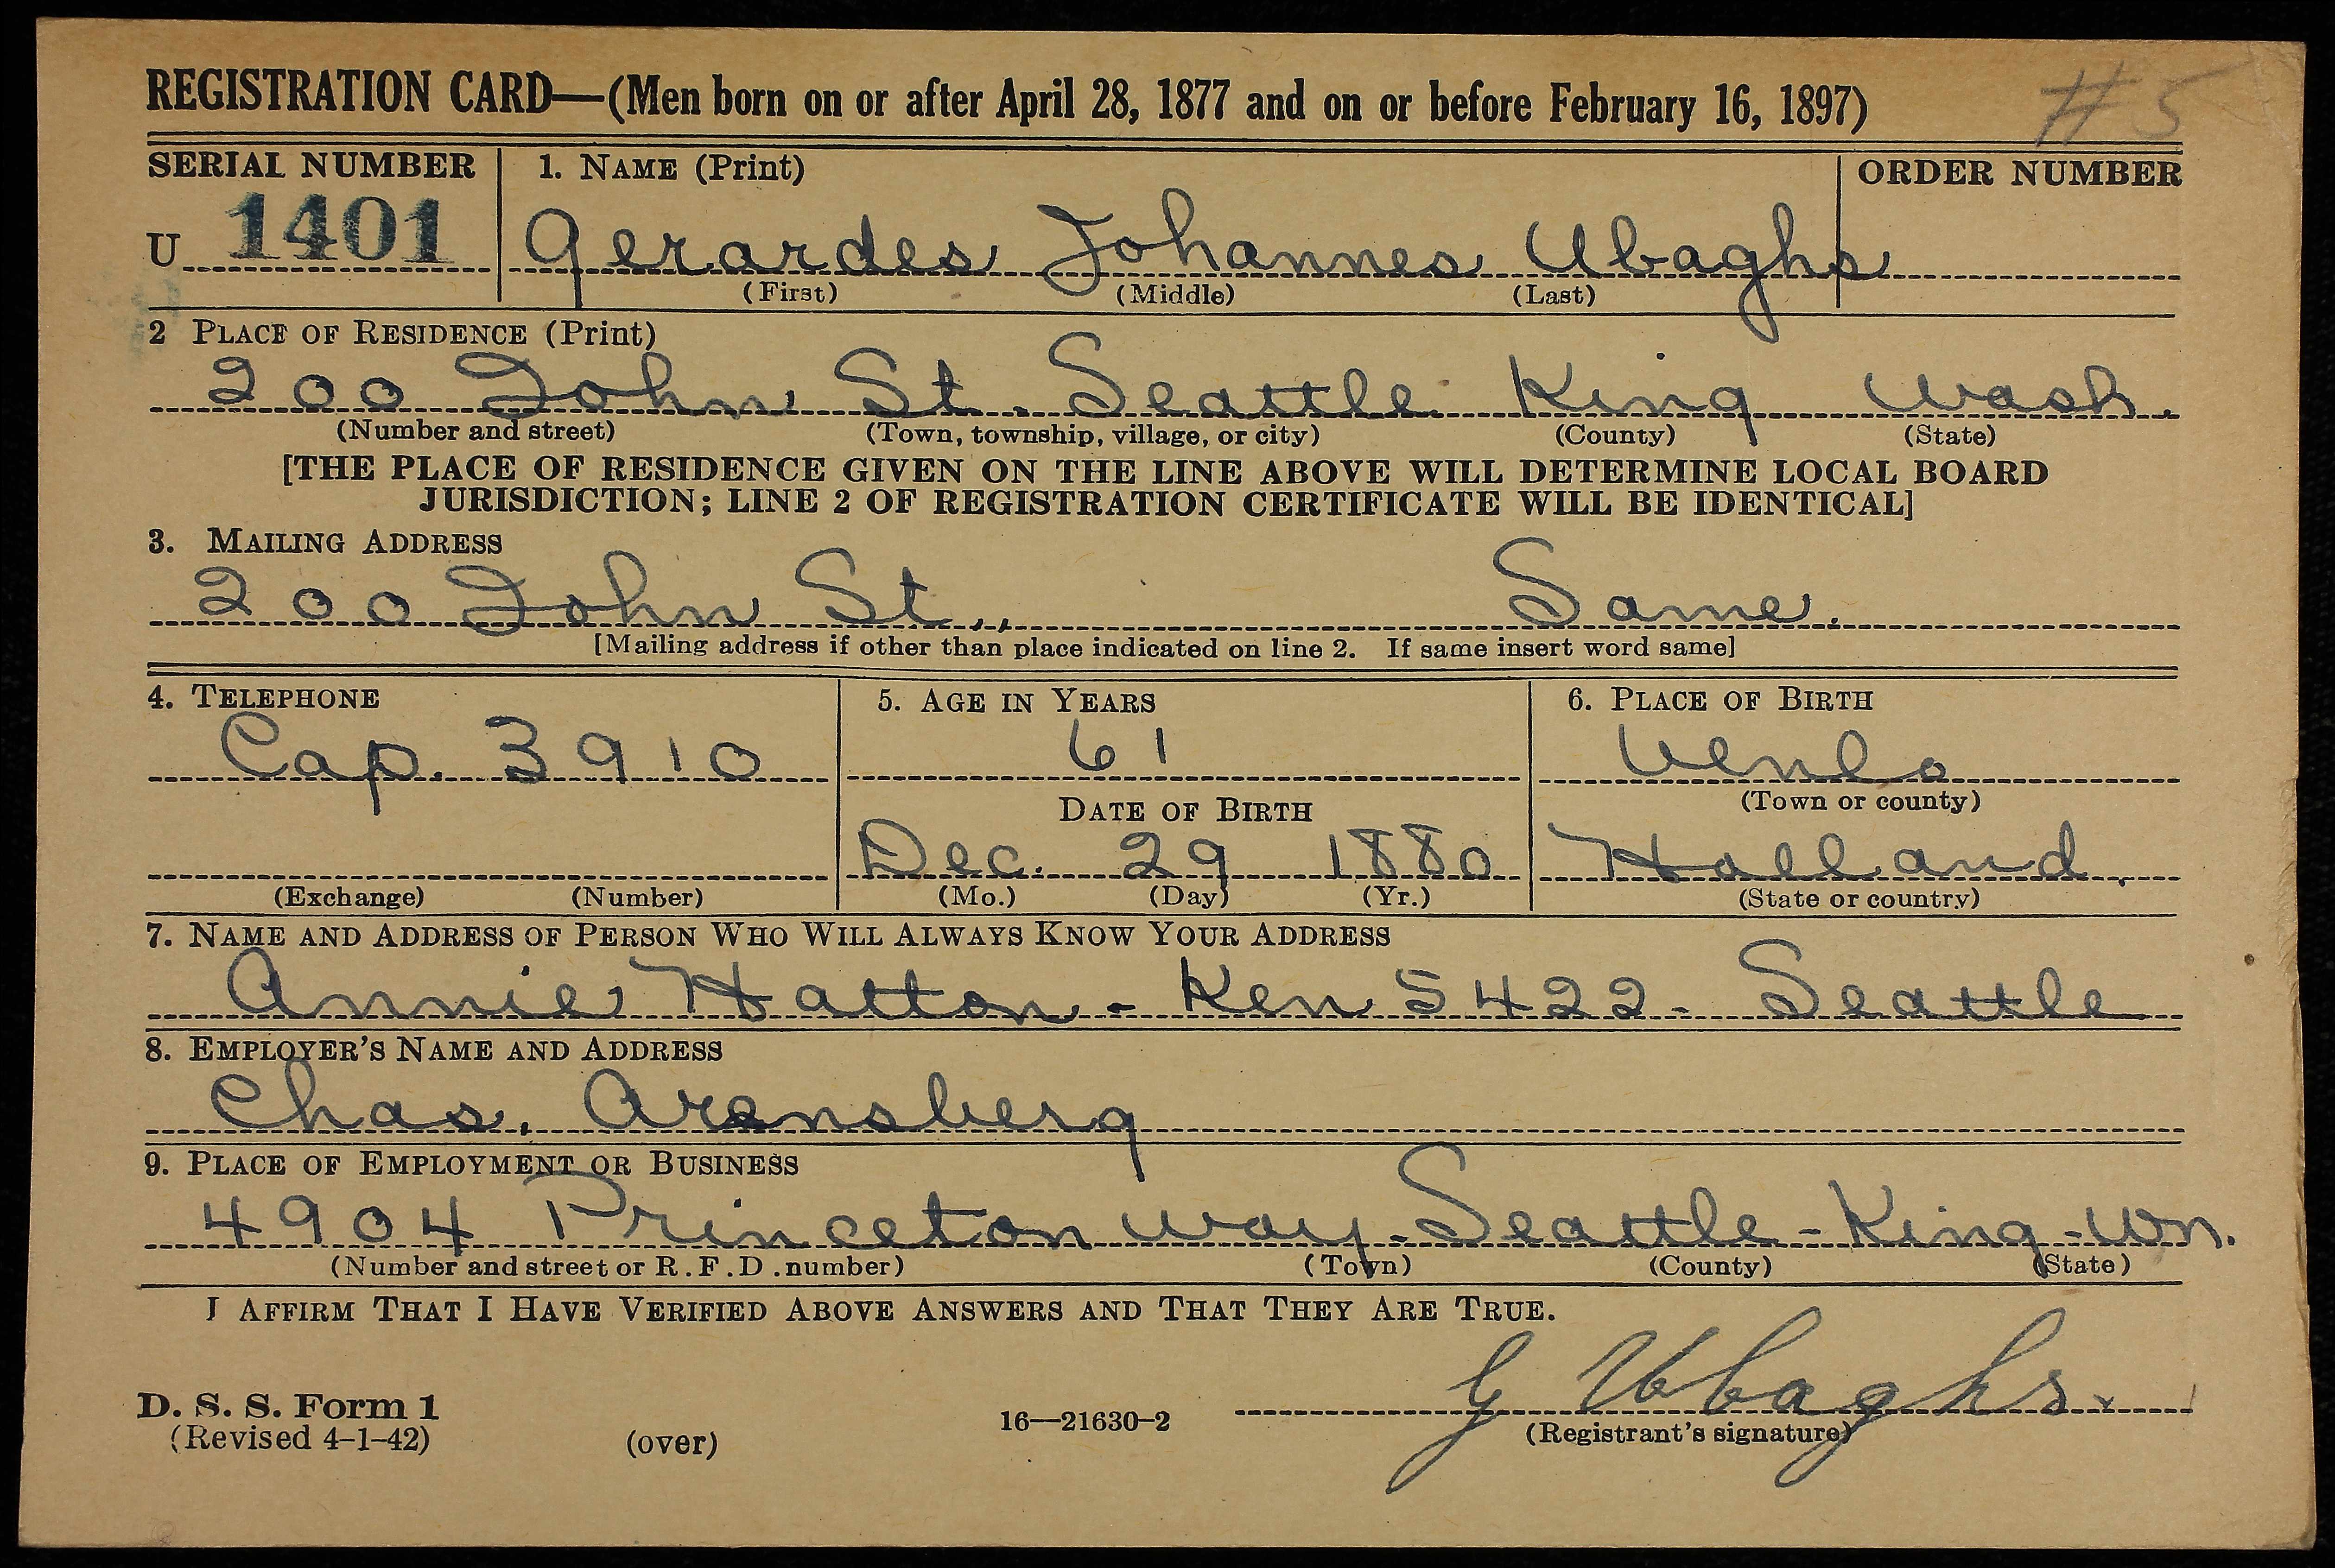 REGISTRATION CARD—(Men born on or after April 28, 1877 and on or before February 16, 1897) #5
SERIAL NUMBER 1. NAME (Print) ORDER NUMBER
U 1401 Gerardes Johannes Ubaghs
(First) (Middle) (Last)
2 PLACE OF RESIDENCE (Print)
200 John St. Seattle King Wash.
(Number and street) (Town, township, village, or city) (County) (State)
[THE PLACE OF RESIDENCE GIVEN ON THE LINE ABOVE WILL DETERMINE LOCAL BOARD
JURISDICTION; LINE 2 OF REGISTRATION CERTIFICATE WILL BE IDENTICAL]
3. MAILING ADDRESS
200 John St., Same.
[Mailing address if other than place indicated on line 2. If same insert word same]
4. TELEPHONE 5. AGE IN YEARS 6. PLACE OF BIRTH
Cap. 3910 61 Venlo
DATE OF BIRTH (Town or county)
Dec. 29 1880 Holland.
(Exchange) (Number) (Mo.) (Day) (Yr.) (State or country)
7. NAME AND ADDRESS OF PERSON WHO WILL ALWAYS KNOW YOUR ADDRESS
Annie Hatton - Ken 5422 - Seattle
8. EMPLOYER'S NAME AND ADDRESS
Chas. Arensberg
9. PLACE OF EMPLOYMENT OR BUSINESS
4904 Princeton Way - Seattle - King - Wn.
(Number and street or R.F.D. number) (Town) (County) (State)
I AFFIRM THAT I HAVE VERIFIED ABOVE ANSWERS AND THAT THEY ARE TRUE.
G Ubaghs
D. S. S. Form 1
(Revised 4-1-42) (over) 16—21630-2 (Registrant's signature)